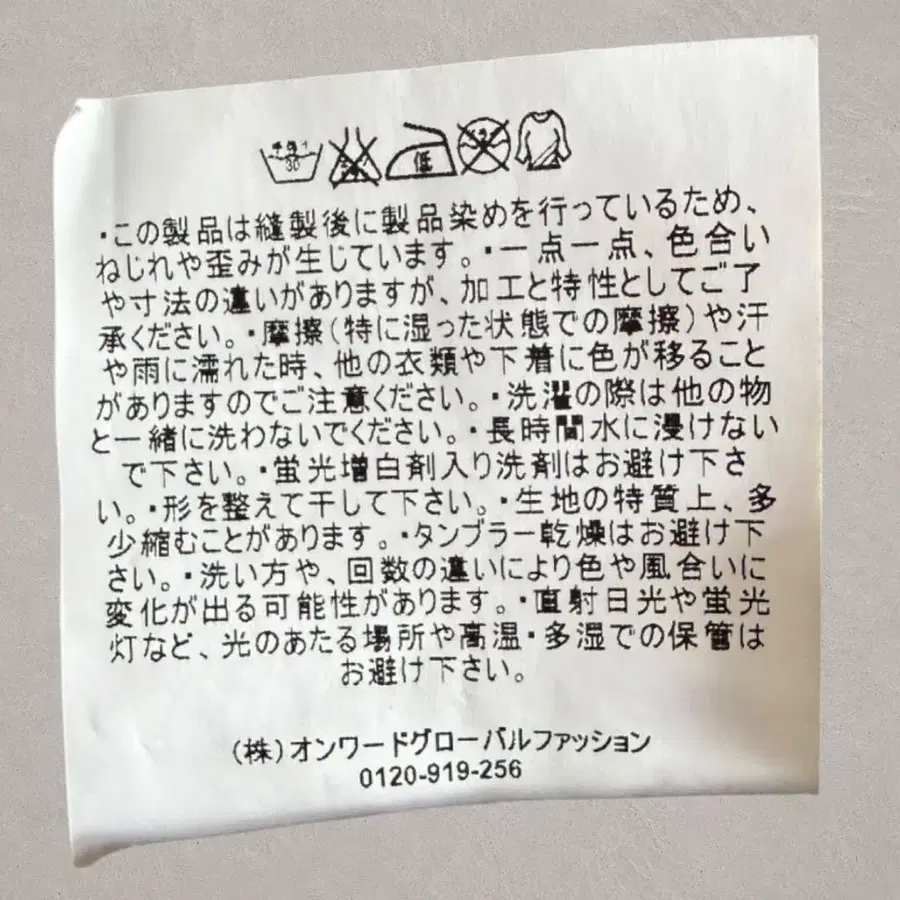 手洗イ 30
低
・この製品は縫製後に製品染めを行っているため、
ねじれや歪みが生じています。・一点一点、色合い
や寸法の違いがありますが、加工と特性としてご了
承ください。・摩擦(特に湿った状態での摩擦)や汗
や雨に濡れた時、他の衣類や下着に色が移ること
がありますのでご注意ください。・洗濯の際は他の物
と一緒に洗わないでください。・長時間水に浸けない
で下さい。・蛍光増白剤入り洗剤はお避け下さ
い。・形を整えて干して下さい。・生地の特質上、多
少縮むことがあります。・タンブラー乾燥はお避け下
さい。・洗い方や、回数の違いにより色や風合いに
変化が出る可能性があります。・直射日光や蛍光
灯など、光のあたる場所や高温・多湿での保管は
お避け下さい。
(株)オンワードグローバルファッション
0120-919-256